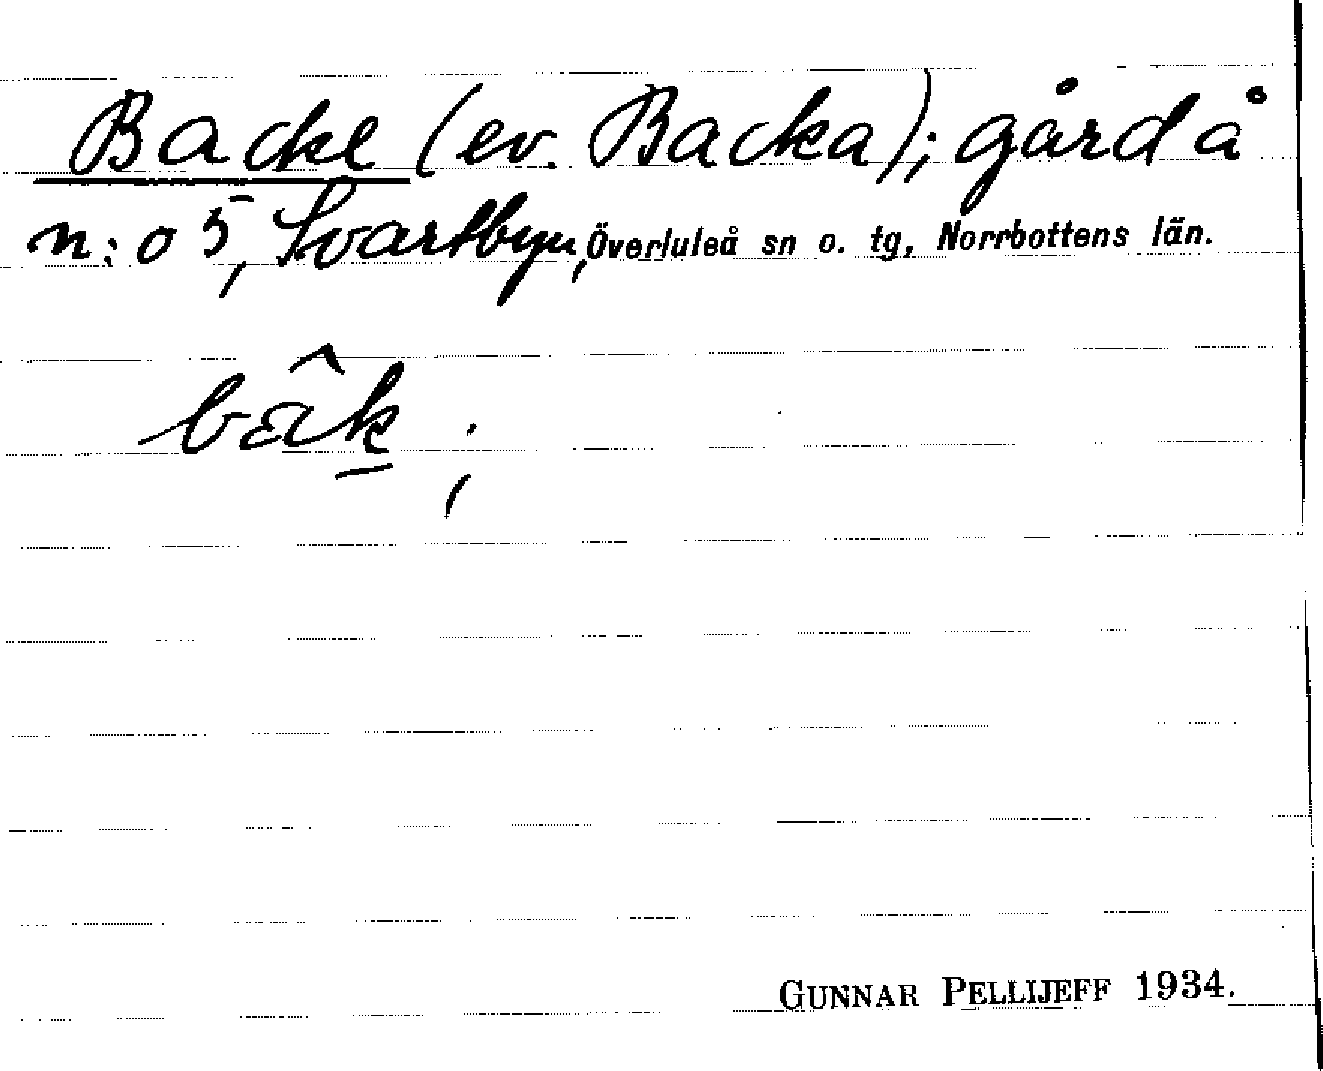 Backe (ev. Backa); gård å
n:o 5, Svartbyn, Överluleå sn o. tg, Norrbottens län.
bâk ;
GUNNAR PELLIJEFF 1934.